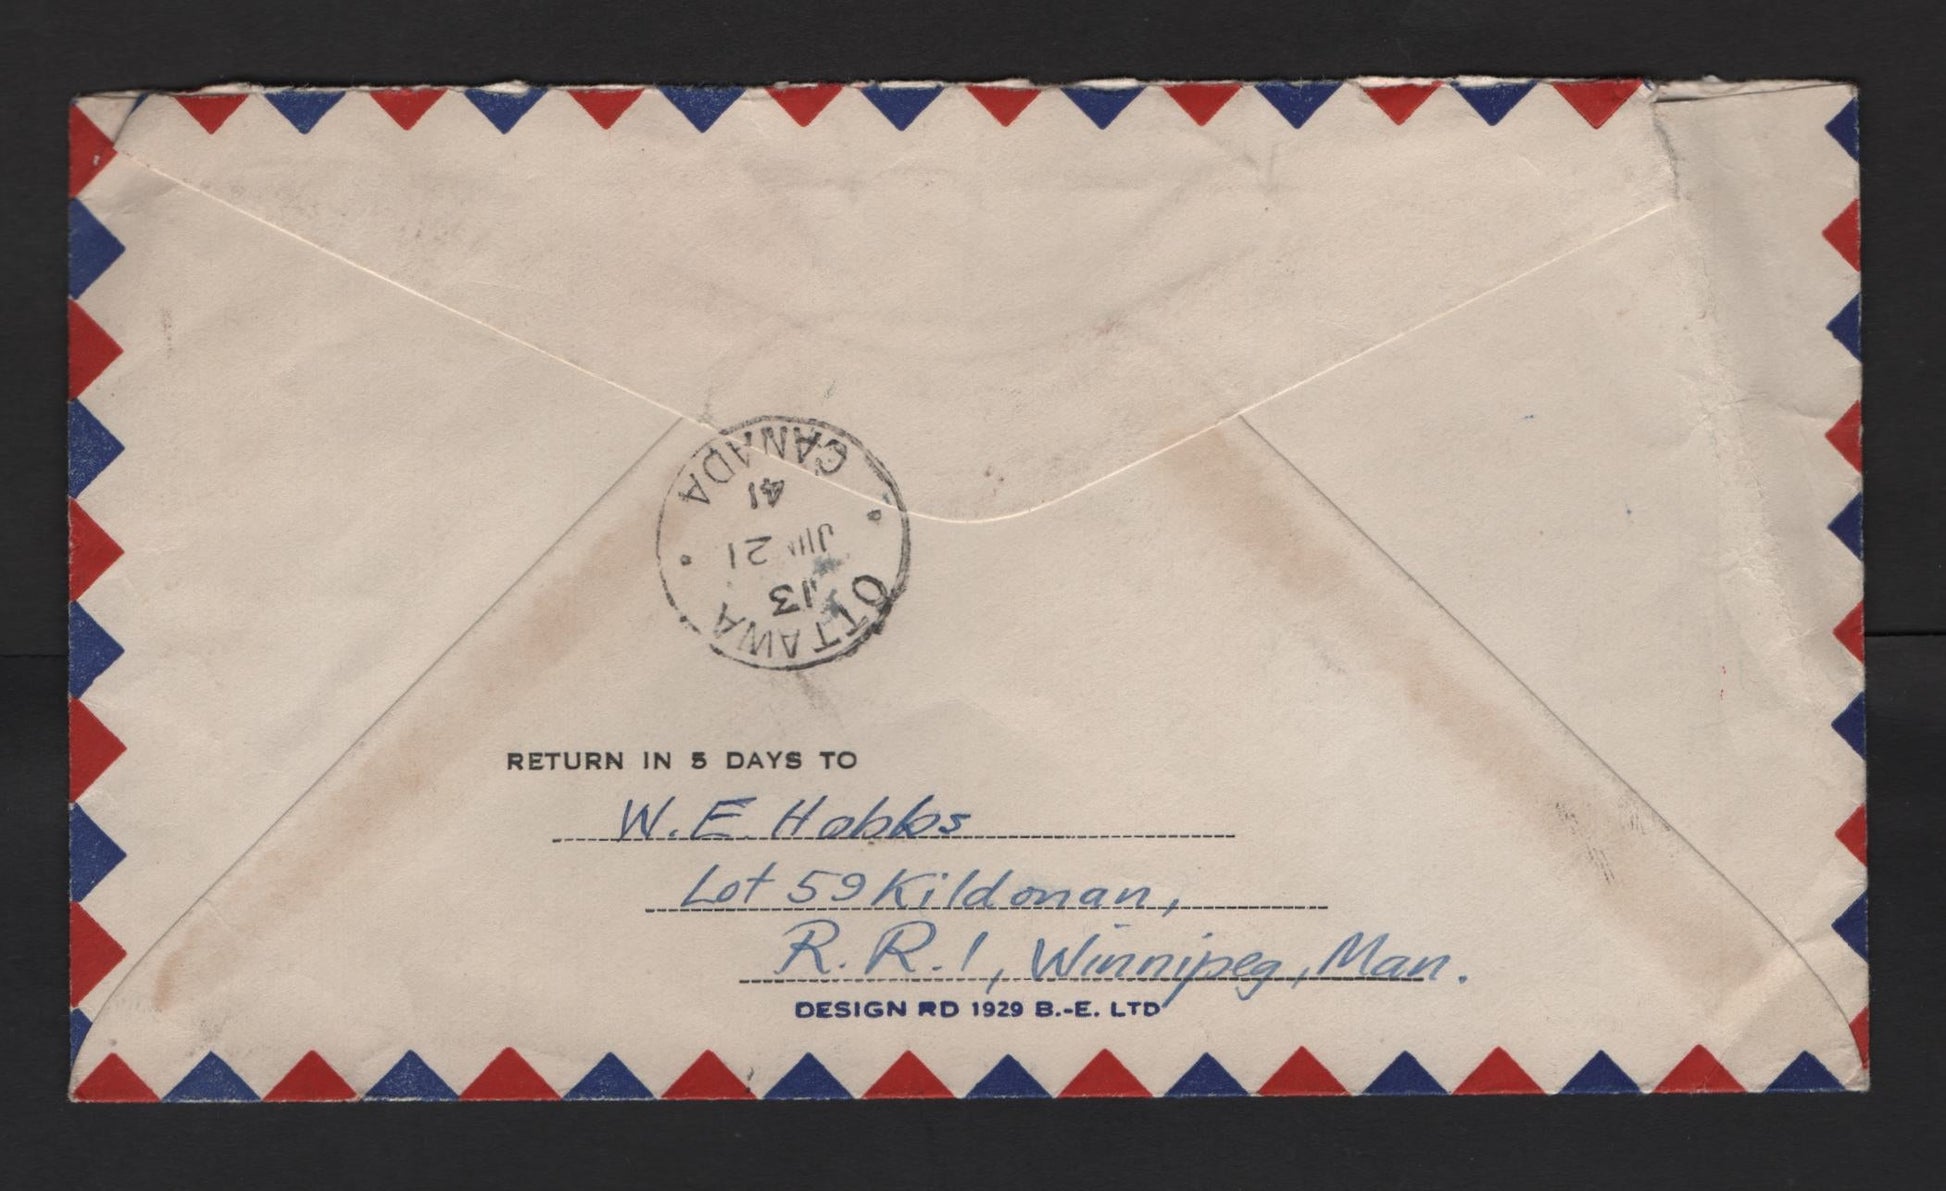 OTTAWA
13
21
41
CANADA
RETURN IN 5 DAYS TO
W. E. Hobbs
Lot 59 Kildonan,
R. R. 1, Winnipeg, Man.
DESIGN RD 1929 B.-E. LTD